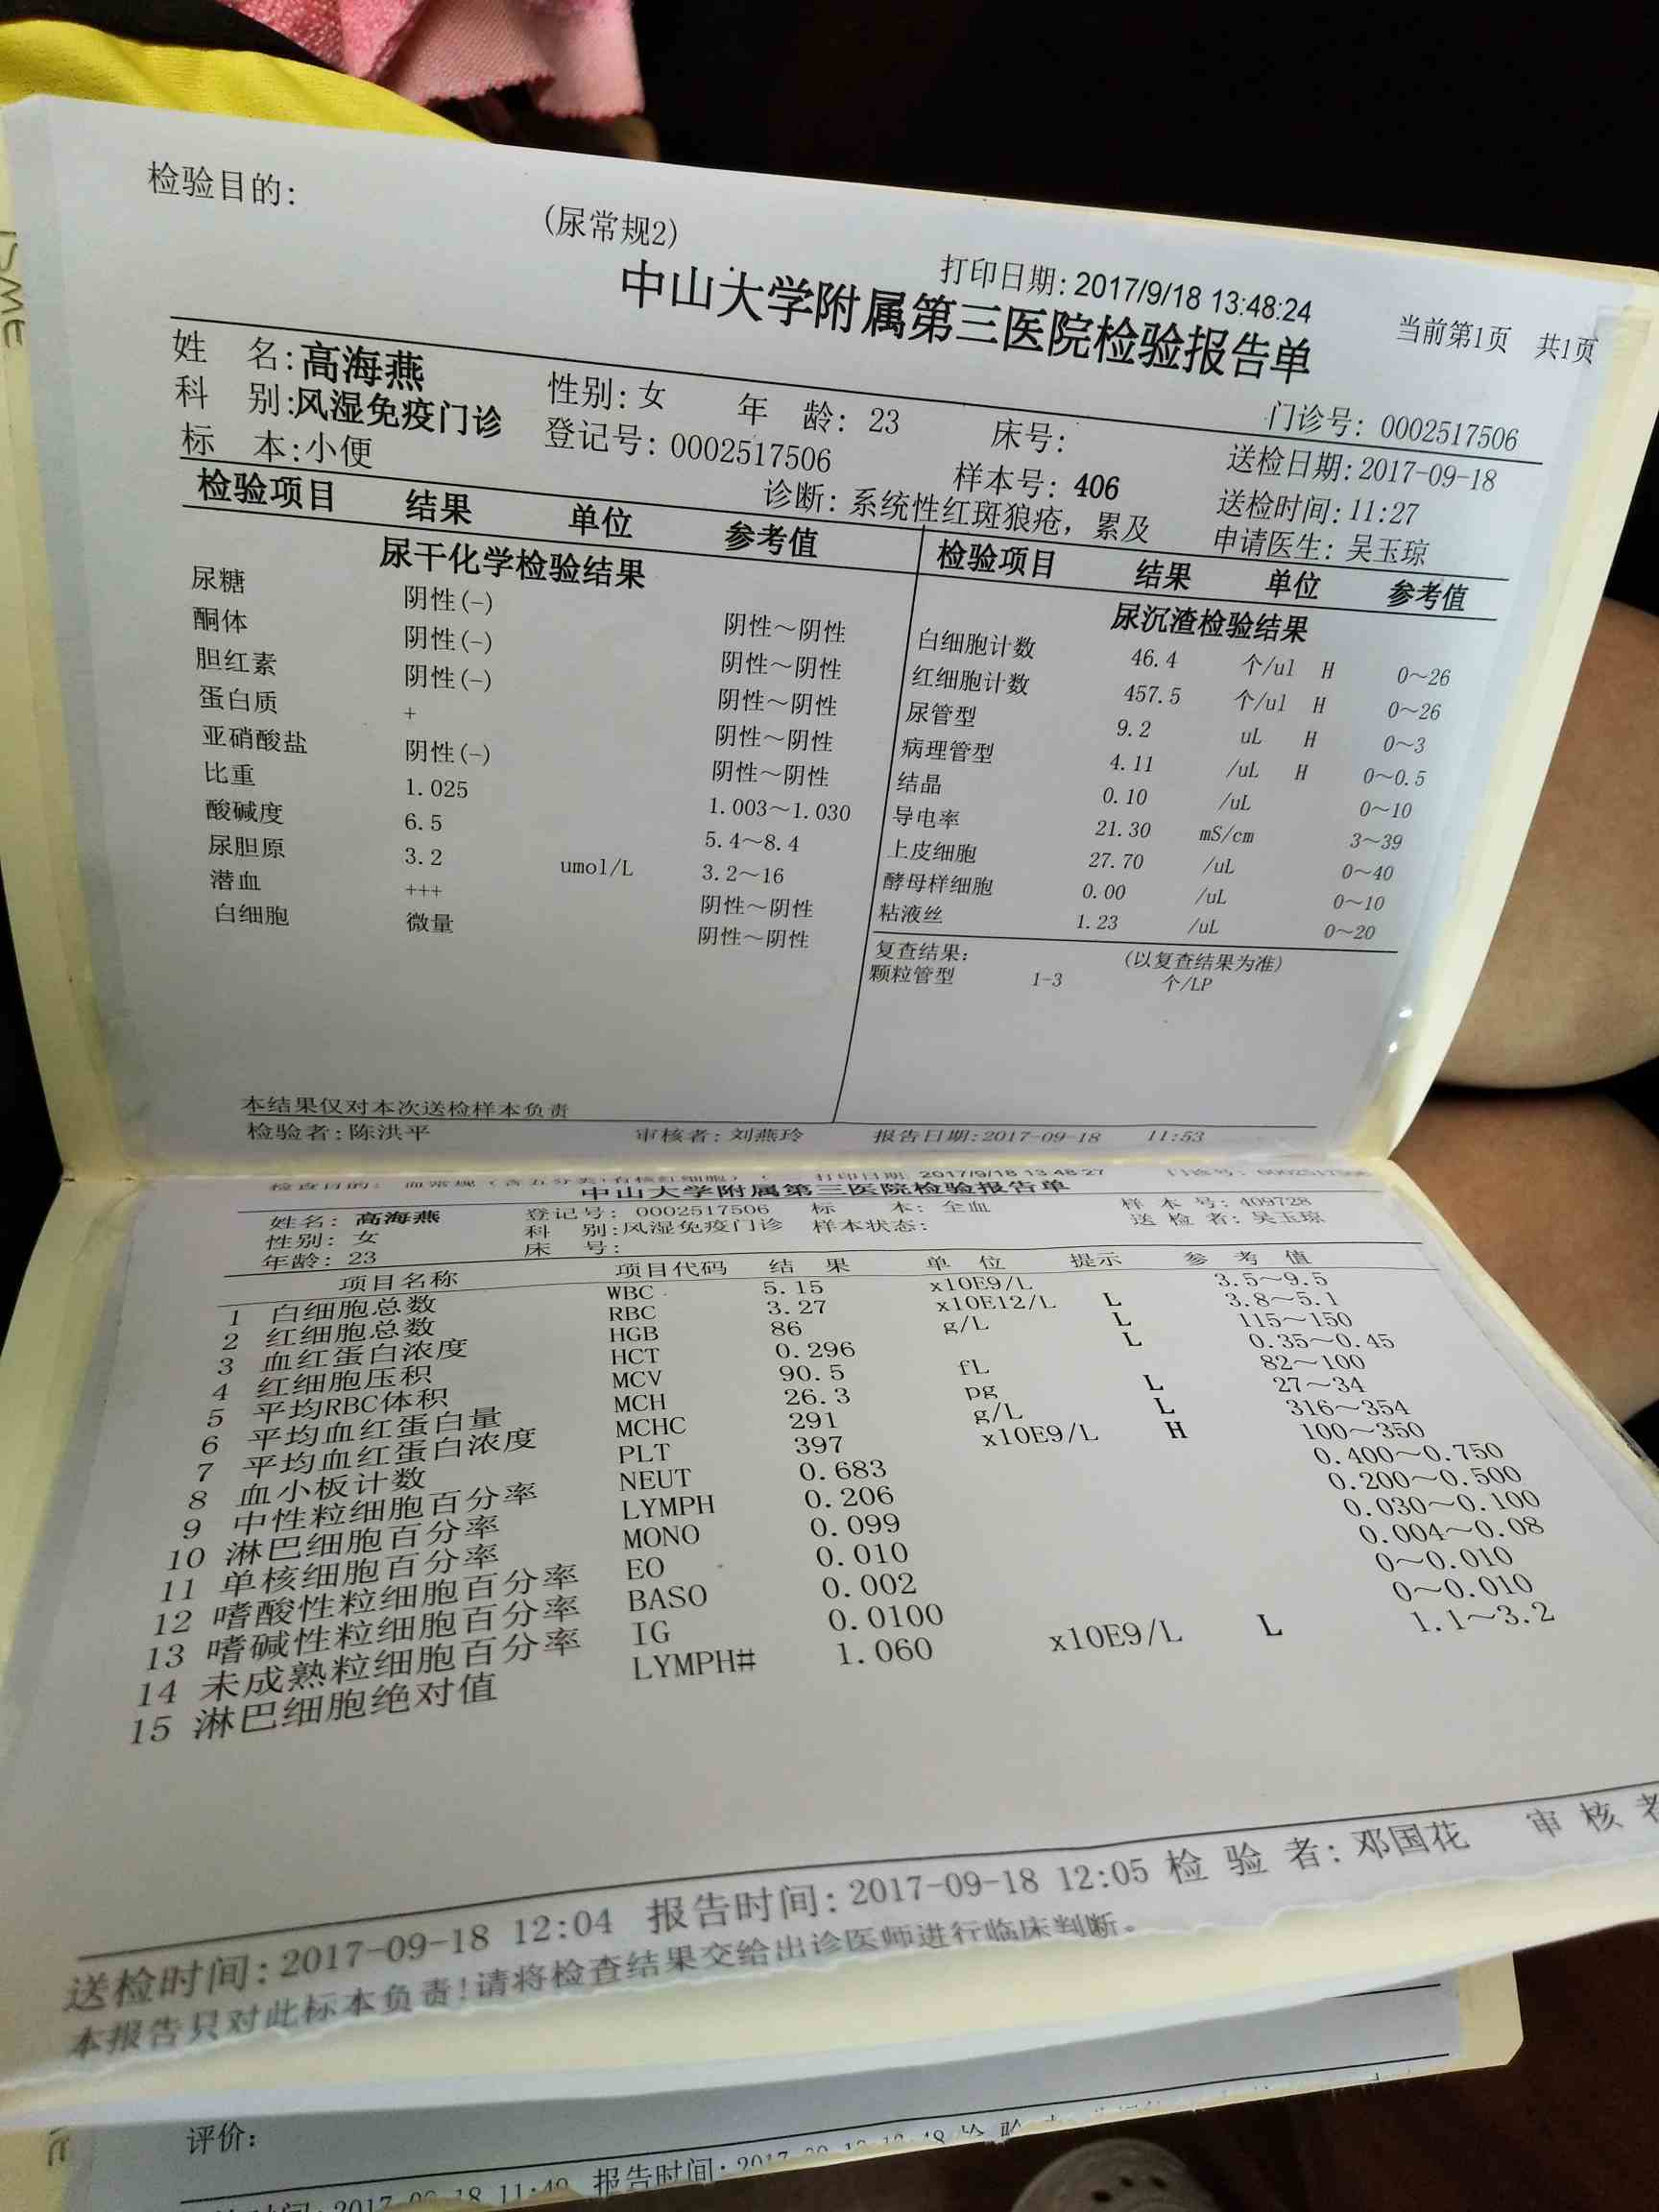 检验目的:
(尿常规2)
打印日期: 2017/9/18 13:48:24
中山大学附属第三医院检验报告单
当前第1页 共1页
姓 名:高海燕 性别: 女 年 龄: 23 床号: 门诊号: 0002517506
科 别:风湿免疫门诊 登记号: 0002517506 样本号: 406 送检日期:2017-09-18
标 本:小便 诊断: 系统性红斑狼疮, 累及 送检时间:11:27
申请医生: 吴玉琼
检验项目 结果 单位 参考值
尿干化学检验结果
尿糖 阴性(-) 阴性～阴性
酮体 阴性(-) 阴性～阴性
胆红素 阴性(-) 阴性～阴性
蛋白质 + 阴性～阴性
亚硝酸盐 阴性(-) 阴性～阴性
比重 1.025 1.003～1.030
酸碱度 6.5 5.4～8.4
尿胆原 3.2 umol/L 3.2～16
潜血 +++ 阴性～阴性
白细胞 微量 阴性～阴性
检验项目 结果 单位 参考值
尿沉渣检验结果
白细胞计数 46.4 个/ul H 0～26
红细胞计数 457.5 个/ul H 0～26
尿管型 9.2 uL H 0～3
病理管型 4.11 /uL H 0～0.5
结晶 0.10 /uL 0～10
导电率 21.30 mS/cm 3～39
上皮细胞 27.70 /uL 0～40
酵母样细胞 0.00 /uL 0～10
粘液丝 1.23 /uL 0～20
复查结果: (以复查结果为准)
颗粒管型 1-3 个/LP
本结果仅对本次送检样本负责
检验者:陈洪平 审核者:刘燕玲 报告日期:2017-09-18 11:53
检查目的: 血常规(含五分类,有核红细胞) 打印日期: 2017/9/18 13:48:27
中山大学附属第三医院检验报告单
姓名: 高海燕 登记号: 0002517506 标 本: 全血 样 本 号: 409728
性别: 女 科 别:风湿免疫门诊 样本状态: 送 检 者: 吴玉琼
年龄: 23 床 号:
项目名称 项目代码 结 果 单 位 提示 参 考 值
1 白细胞总数 WBC 5.15 x10E9/L 3.5～9.5
2 红细胞总数 RBC 3.27 x10E12/L L 3.8～5.1
3 血红蛋白浓度 HGB 86 g/L L 115～150
4 红细胞压积 HCT 0.296 L 0.35～0.45
5 平均RBC体积 MCV 90.5 fL 82～100
6 平均血红蛋白量 MCH 26.3 pg L 27～34
7 平均血红蛋白浓度 MCHC 291 g/L L 316～354
8 血小板计数 PLT 397 x10E9/L H 100～350
9 中性粒细胞百分率 NEUT 0.683 0.400～0.750
10 淋巴细胞百分率 LYMPH 0.206 0.200～0.500
11 单核细胞百分率 MONO 0.099 0.030～0.100
12 嗜酸性粒细胞百分率 EO 0.010 0.004～0.08
13 嗜碱性粒细胞百分率 BASO 0.002 0～0.010
14 未成熟粒细胞百分率 IG 0.0100 0～0.010
15 淋巴细胞绝对值 LYMPH# 1.060 x10E9/L L 1.1～3.2
送检时间:2017-09-18 12:04 报告时间:2017-09-18 12:05 检 验 者:邓国花 审 核 者
本报告只对此标本负责!请将检查结果交给出诊医师进行临床判断。
评价:
2017-09-18 11:49 报告时间: